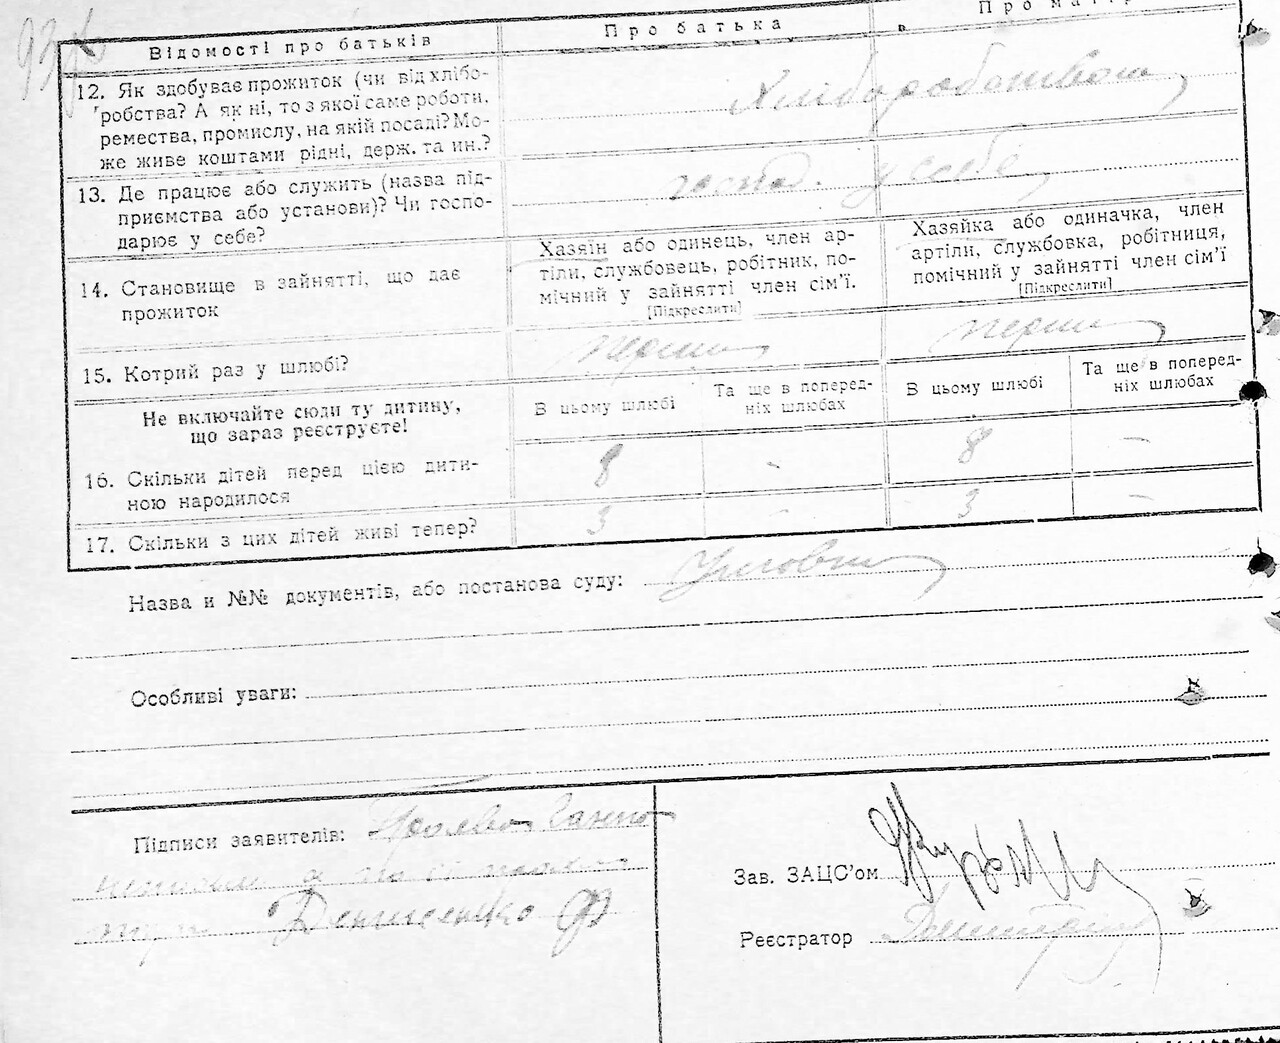 Відомості про батьків
Про батька
12. Як здобуває прожиток (чи від хлібо-
робства? А як ні, то з якої саме роботи,
ремества, промислу, на якій посаді? Мо-
же живе коштами рідні, держ. та ин.?
Хліборобством
13. Де працює або служить (назва під-
приємства або установи)? Чи госпо-
дарює у себе?
господ. у себе
14. Становище в зайнятті, що дає
прожиток
Хазяїн або одинець, член ар-
тіли, службовець, робітник, по-
мічний у зайнятті член сім'ї.
[Підкреслити]
Хазяйка або одиначка, член
артіли, службовка, робітниця,
помічний у зайнятті член сім'ї
[Підкреслити]
15. Котрий раз у шлюбі?
перший
перший
Не включайте сюди ту дитину,
що зараз реєструєте!
В цьому шлюбі
Та ще в поперед-
ніх шлюбах
В цьому шлюбі
Та ще в поперед-
ніх шлюбах
16. Скільки дітей перед цією дити-
ною народилося
8 - 8 -
17. Скільки з цих дітей живі тепер?
3 - 3 -
Назва и №№ документів, або постанова суду:
Особливі уваги:
Підписи заявителів:
Денисенко Ф
Зав. ЗАЦС'ом
Реєстратор